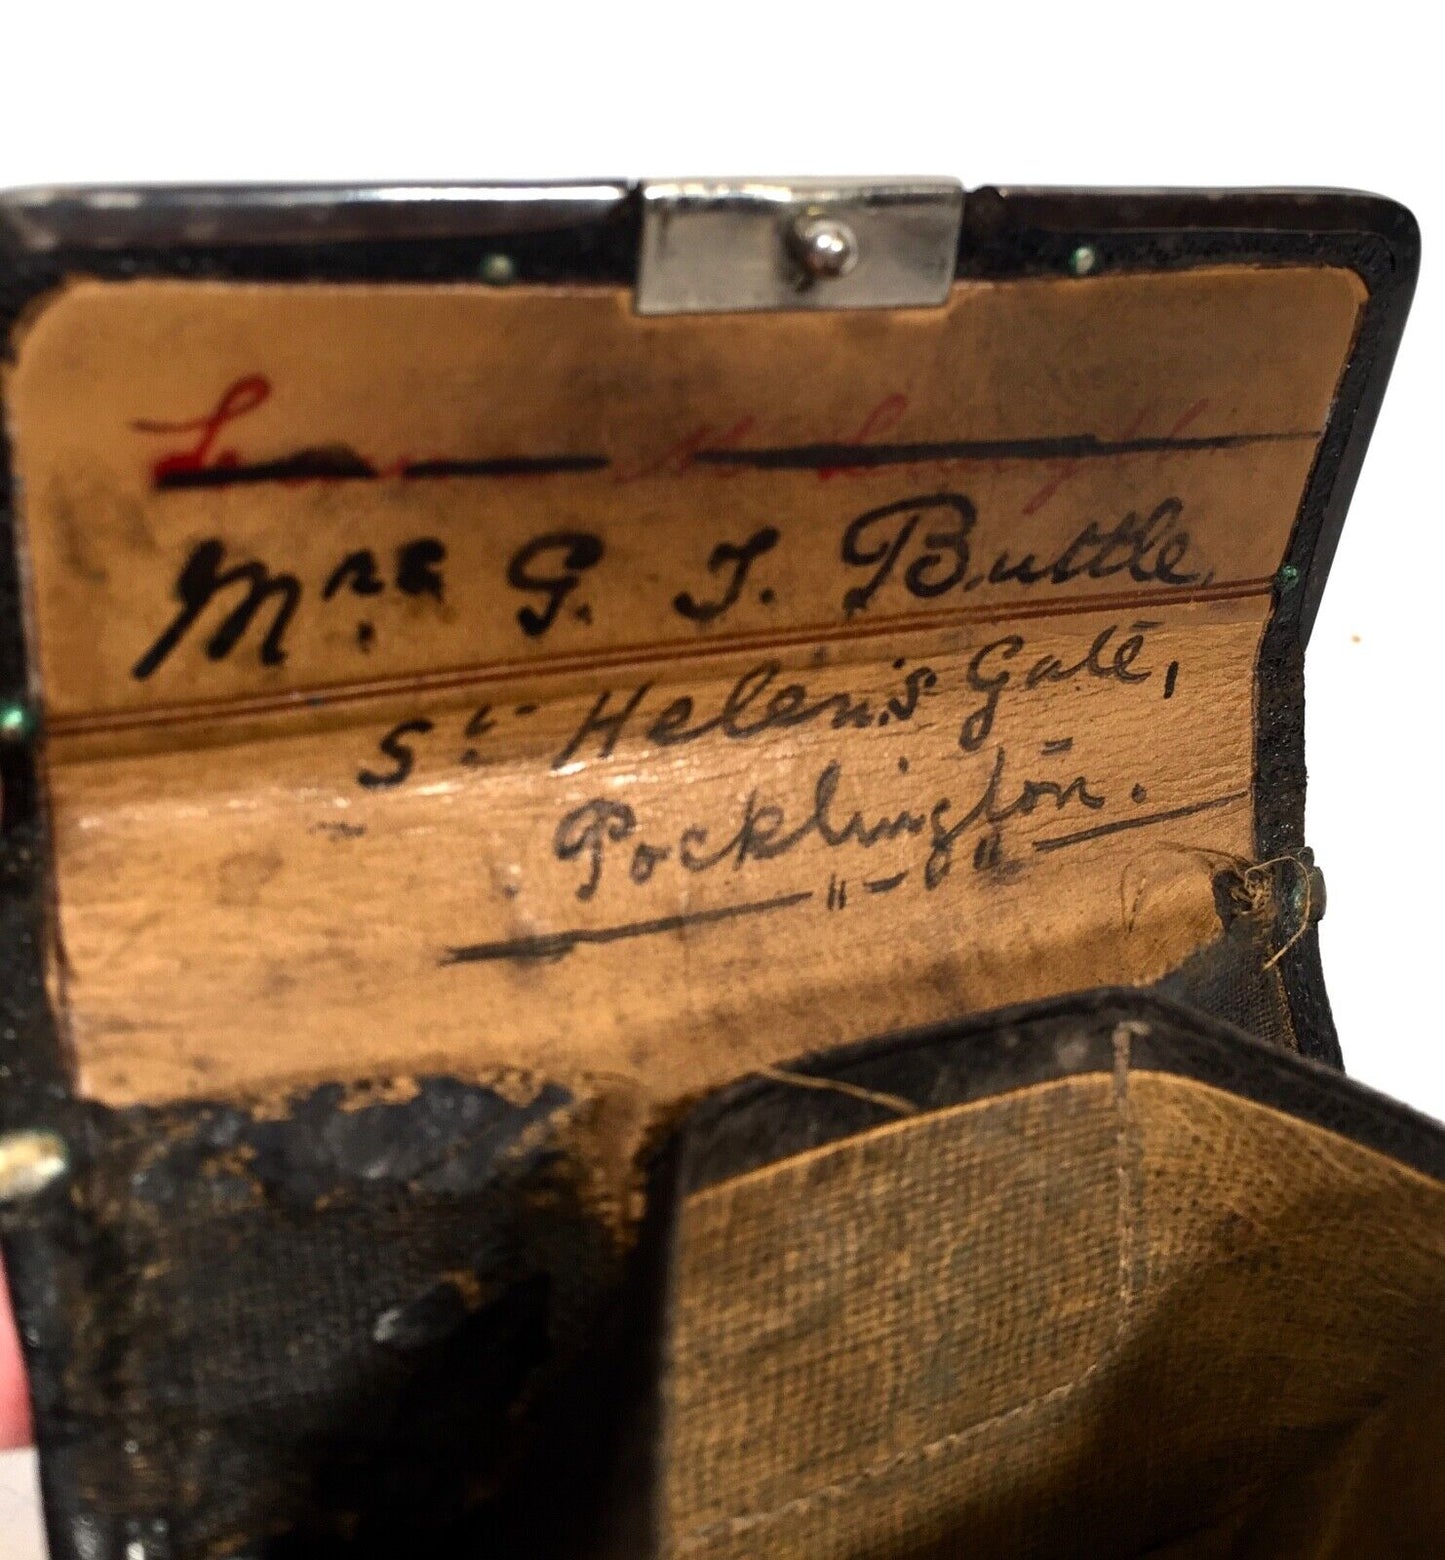 Mrs G. T. Buttle,
St Helen's Gate,
Pocklington.